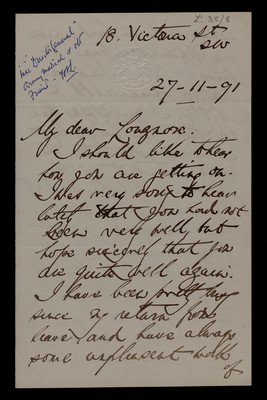 L. 35/8
18. Victoria St
SW
27-11-91
My dear Longmore.
I should like to hear
how you are getting on.
I was very sorry to hear
lately that you had not
been very well, but
hope sincerely that you
are quite well again.
I have been pretty busy
since my return from
leave and have always
some unpleasant work
of